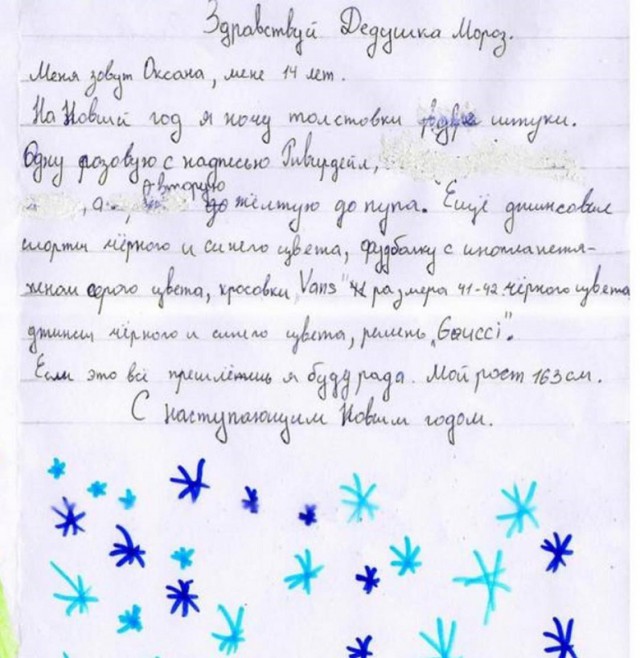 Здравствуй Дедушка Мороз.
Меня зовут Оксана, мене 14 лет.
На Новый год я хочу толстовки две штуки.
Одну розовую с надписью Ривирдейл,
, а вторую жёлтую до пупа. Ещё джинсовые
шорты чёрного и синего цвета, фудболку с инопланетя-
нином серого цвета, кросовки „Vans" размера 41-42 чёрного цвета
джинсы чёрного и синего цвета, ремень „Guucci".
Если это всё пришлёшь я буду рада. Мой рост 163 см.
С наступающим Новым годом.